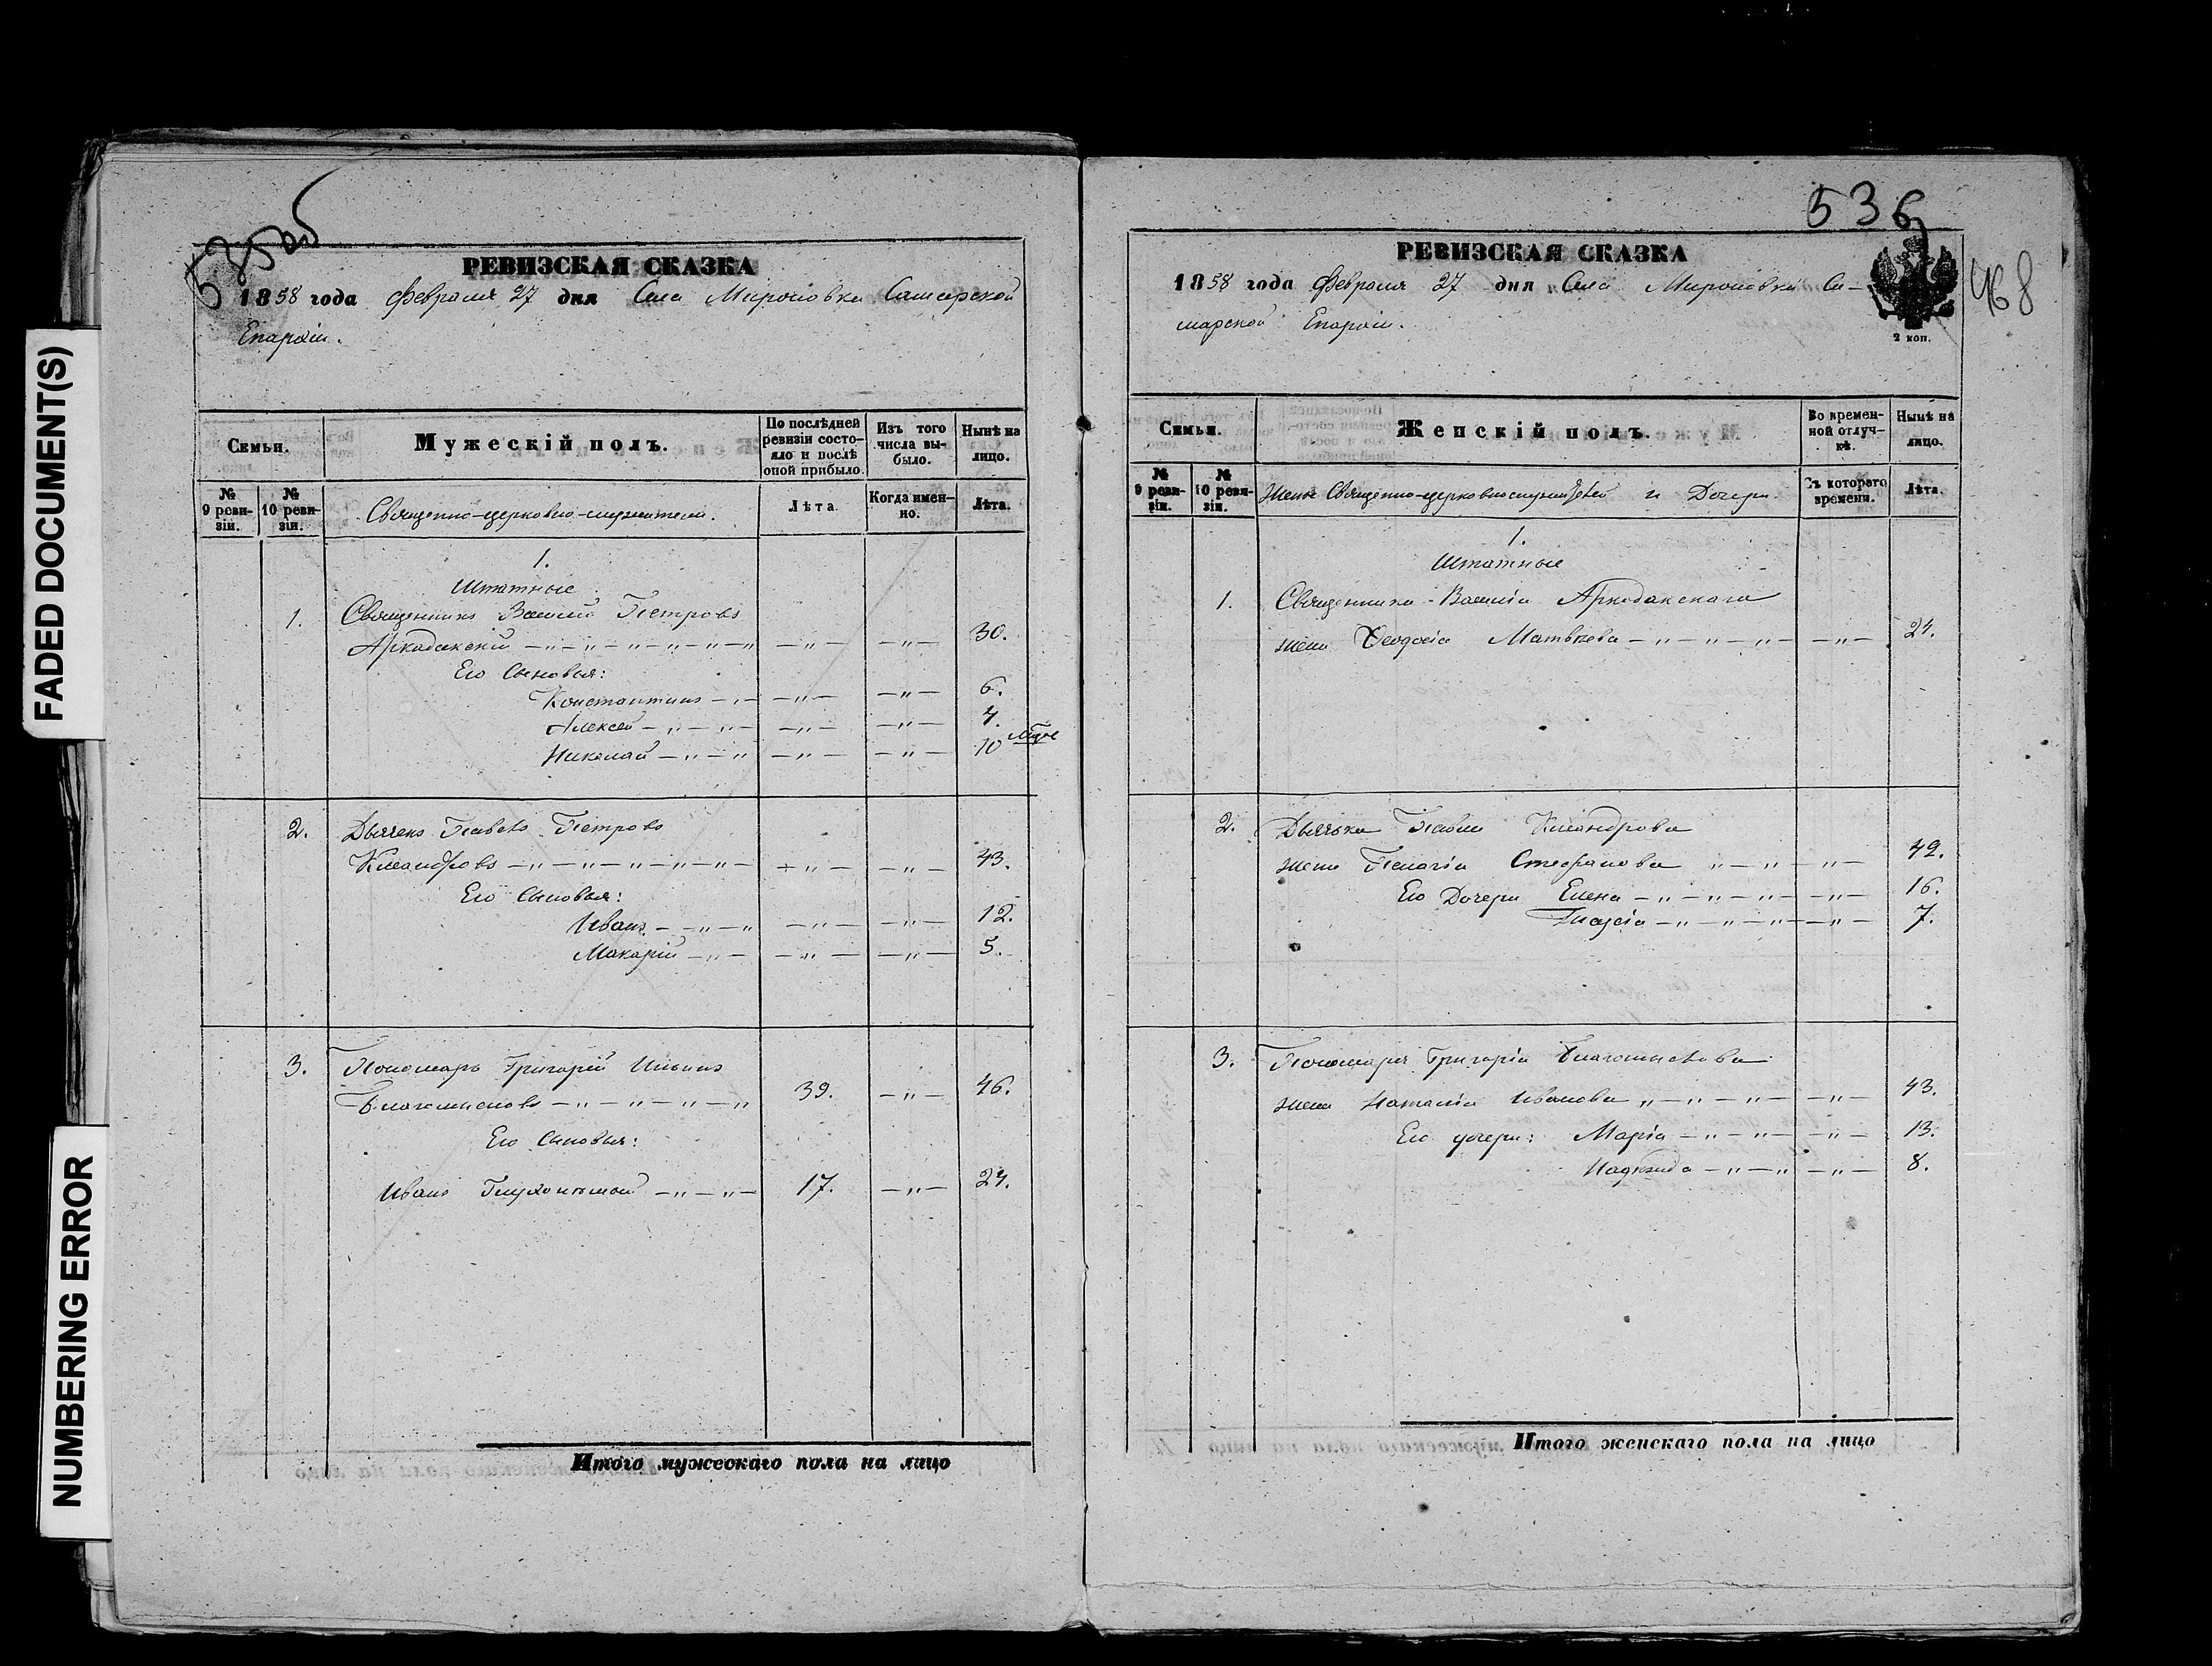 FADED DOCUMENT(S)
NUMBERING ERROR
535об
РЕВИЗСКАЯ СКАЗКА
1858 года Февраля 27 дня Села Мироновки Самарской
Епархіи.
Семьи.
Мужескій полъ.
По послѣдней ревизіи состояло и послѣ оной прибыло.
Изъ того числа выбыло.
Нынѣ на лицо.
№ 9 ревизіи.
№ 10 ревизіи.
Священно-церковно-служители.
Лѣта.
Когда именно.
Лѣта.
1.
Штатные
1. Священникъ Василій Петровъ
Аркадакскій — „ — „ — „ — „ — „ — „ — „ — — „ — 30.
Его Сыновья:
Константинъ — „ — — „ — — „ — 6.
Алексей — „ — „ — — „ — — „ — 4.
Николай — „ — „ — „ — — „ — 10
2. Дьячекъ Павелъ Петровъ
Клеандровъ — „ — „ — „ — „ — „ — — „ — — „ — 43.
Его Сыновья:
Иванъ — „ — „ — „ — — „ — 12.
Макарій — „ — — „ — — „ — 5.
3. Пономарь Григорій Ильинъ
Благомысловъ — „ — „ — „ — „ 39. — „ — 46.
Его Сыновья:
Иванъ Глухонѣмой — „ — „ — 17. — „ — 24.
Итого мужескаго пола на лицо
536
468
РЕВИЗСКАЯ СКАЗКА
1858 года Февраля 27 дня Села Мироновки Са-
марской Епархіи.
2 коп.
Семьи.
Женскій полъ.
Во временной отлучкѣ.
Нынѣ на лицо.
№ 9 ревизіи.
№ 10 ревизіи.
Жены Священно-церковнослужителей и Дочери.
Съ котораго времени.
Лѣта.
1.
Штатные
1. Священника Василія Аркадакскаго
жена Ѳеодосія Матвѣева — „ — „ — „ — — „ — 24.
2. Дьячька Павла Клеандрова
жена Пелагія Стефанова „ — „ — „ — 42.
Его Дочери Елена — „ — „ — „ — — „ — 16.
— „ — „ — „ — — „ — 7.
3. Пономаря Григорія Благомыслова
жена Наталія Иванова „ — „ — „ — „ — — „ — 43.
Его дочери: Марія — „ — „ — — „ — 13.
Надежда — „ — „ — „ — 8.
Итого женскаго пола на лицо